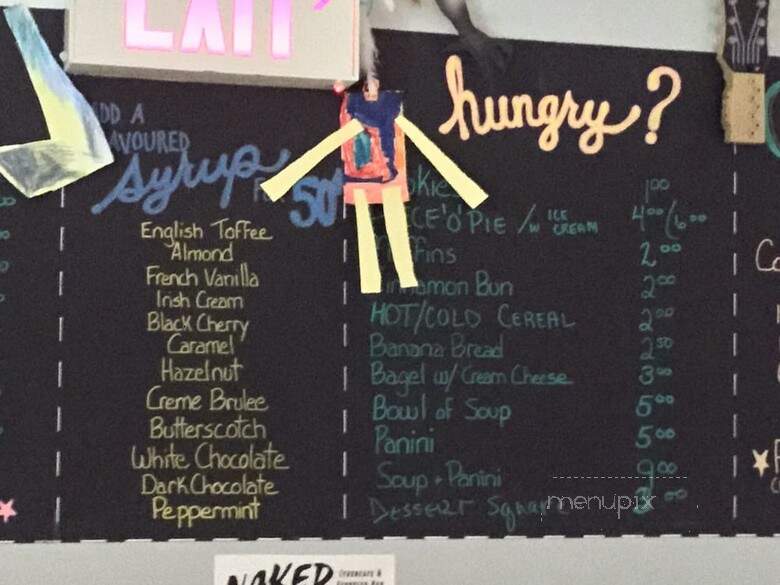 EXIT
ADD A
FLAVOURED
Syrup
FOR 50¢
English Toffee
Almond
French Vanilla
Irish Cream
Black Cherry
Caramel
Hazelnut
Creme Brulee
Butterscotch
White Chocolate
Dark Chocolate
Peppermint
hungry?
1.00
'O' PIE /W ICE CREAM 4.00/6.00
Muffins 2.00
Cinnamon Bun 2.00
HOT/COLD CEREAL 2.00
Banana Bread 2.50
Bagel w/ Cream Cheese 3.00
Bowl of Soup 5.00
Panini 5.00
Soup + Panini 9.00
Dessert Square
menupix
NAKED